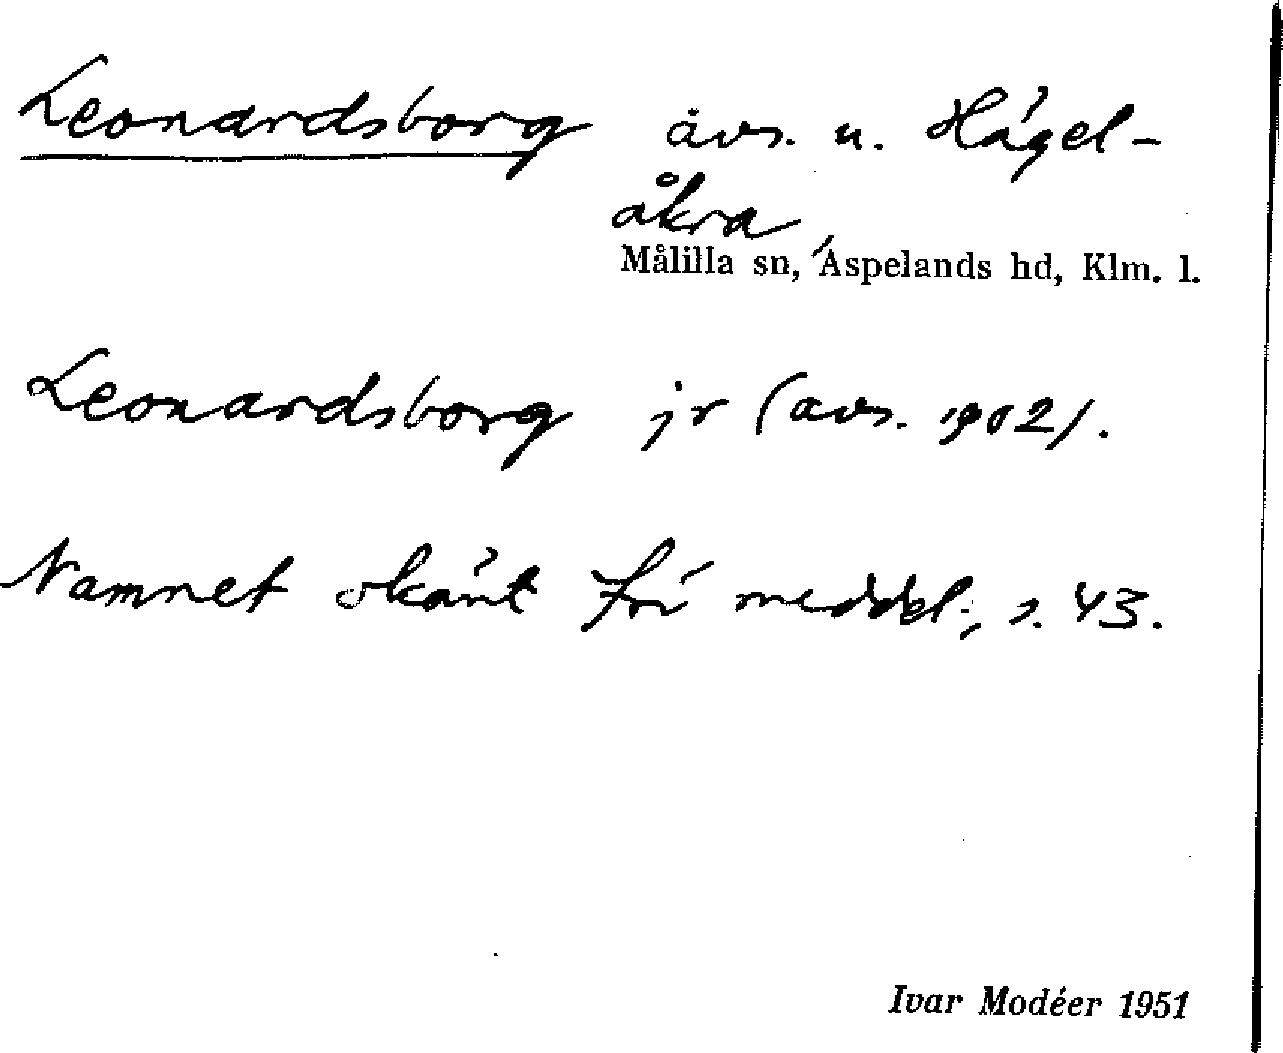 Leonardsborg avs. u. Hagel-
åkra
Målilla sn, Aspelands hd, Klm. l.
Leonardsborg jr (avs. 1902).
Namnet okänt för meddel., s. 43.
Ivar Modéer 1951